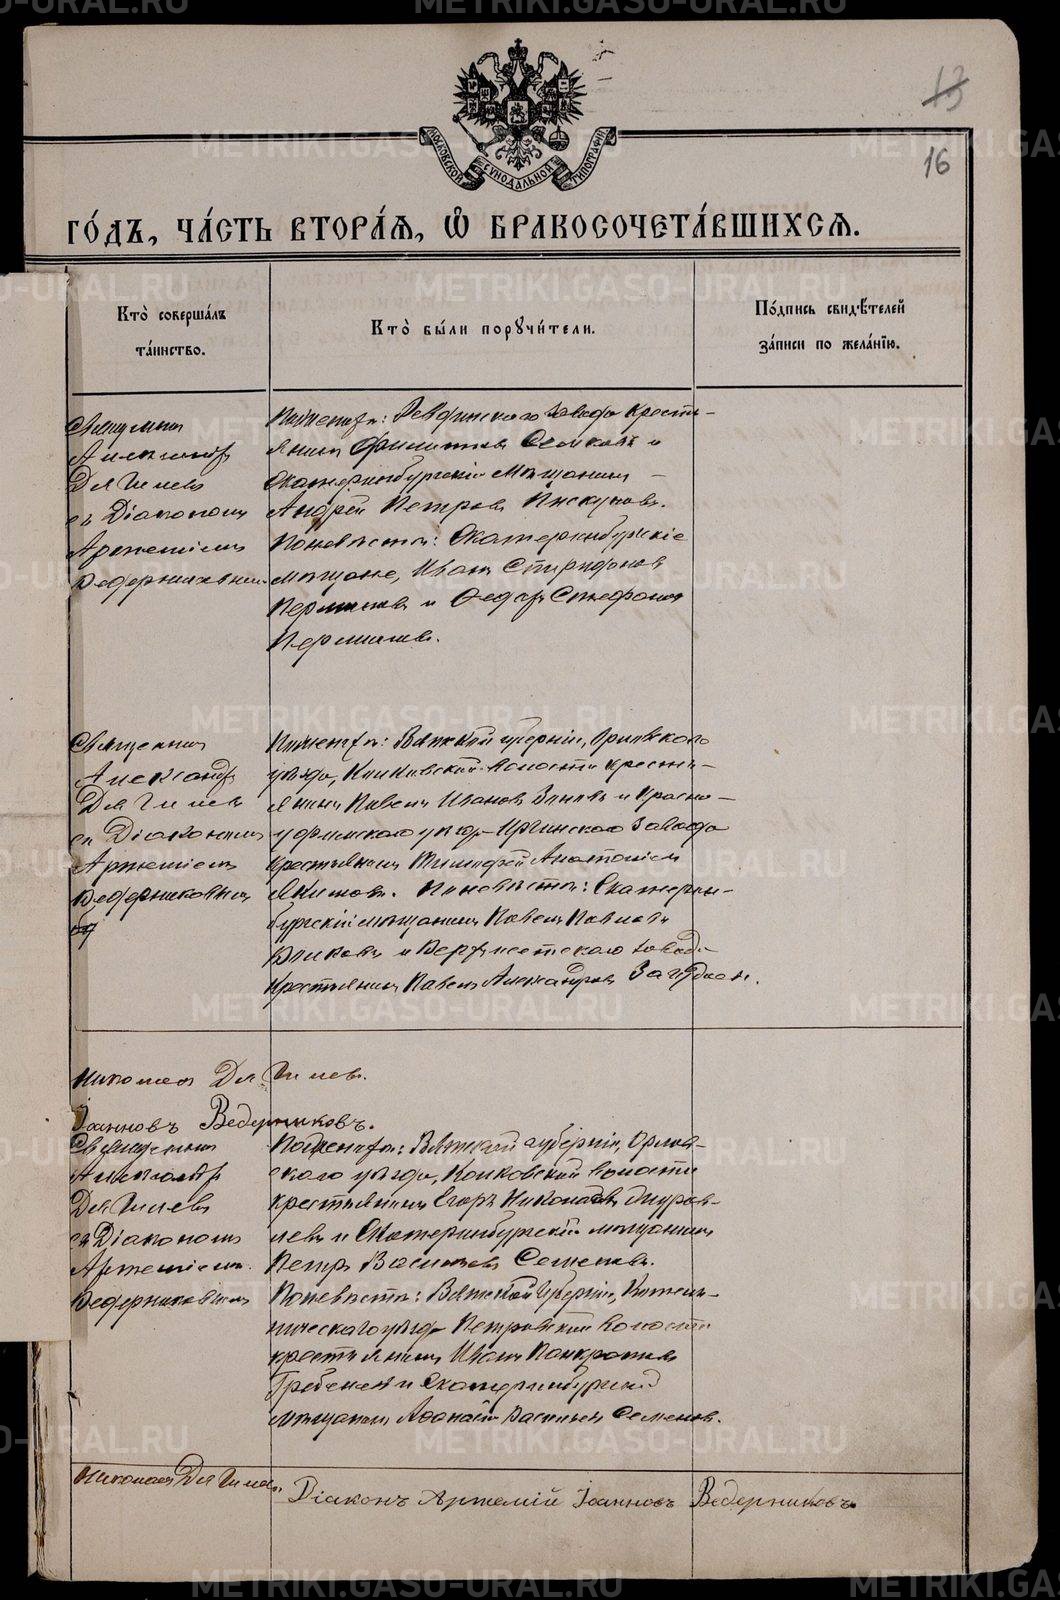 METRIKI.GASO-URAL.RU
13
16
МОСКОВСКОЙ СѴНОДАЛЬНОЙ ТИПОГРАФІИ
ГО́ДЪ, ЧА́СТЬ ВТОРА́Я, Ѡ БРАКОСОЧЕТА́ВШИХСЯ.
Кто̀ соверша́лъ
та́инство.
Кто̀ бы́ли порꙋчи́тели.
По́дпись свидѣ́телей
за́писи по жела́нїю.
Священникъ
Александръ
Дягилевъ
съ Діакономъ
Артеміемъ
Ведерниковымъ
По женихѣ: Ревдинскаго завода кресть-
янинъ Филиппъ и
Екатеринбургскій мѣщанинъ
Андрей Петровъ Пискуновъ.
По невѣстѣ: Екатеринбургскіе
мѣщане, Иванъ Спиридоновъ
и Федоръ Стефановъ
Священникъ
Александръ
Дягилевъ
съ Діакономъ
Артеміемъ
Ведерниковымъ
По женихѣ: Вятской губерніи, Орловскаго
уѣзда, волости кресть-
янинъ Павелъ Ивановъ и Красно-
уфимскаго уѣзда Иргинскаго завода
крестьянинъ Тимофей
Якимовъ. По невѣстѣ: Екатерин-
бургскій мѣщанинъ Павелъ Павловъ
и Верхъисетскаго завода
крестьянинъ Павелъ Александровъ
Николай Дягилевъ.
Іоанновъ Ведерниковъ.
Священникъ
Александръ
Дягилевъ
съ Діакономъ
Артеміемъ
Ведерниковымъ
По женихѣ: Вятской губерніи, Орлов-
скаго уѣзда, волости
крестьянинъ Егоръ Николаевъ Журав-
левъ и Екатеринбургскій мѣщанинъ
Петръ Васильевъ Семеновъ.
По невѣстѣ: Вятской губерніи,
уѣзда Петровской волости
крестьянинъ Иванъ Панкратовъ
Гребеневъ и Екатеринбургскій
мѣщанинъ Афанасій Васильевъ Семеновъ.
Николай Дягилевъ.
Діаконъ Артемій Іоанновъ Ведерниковъ.